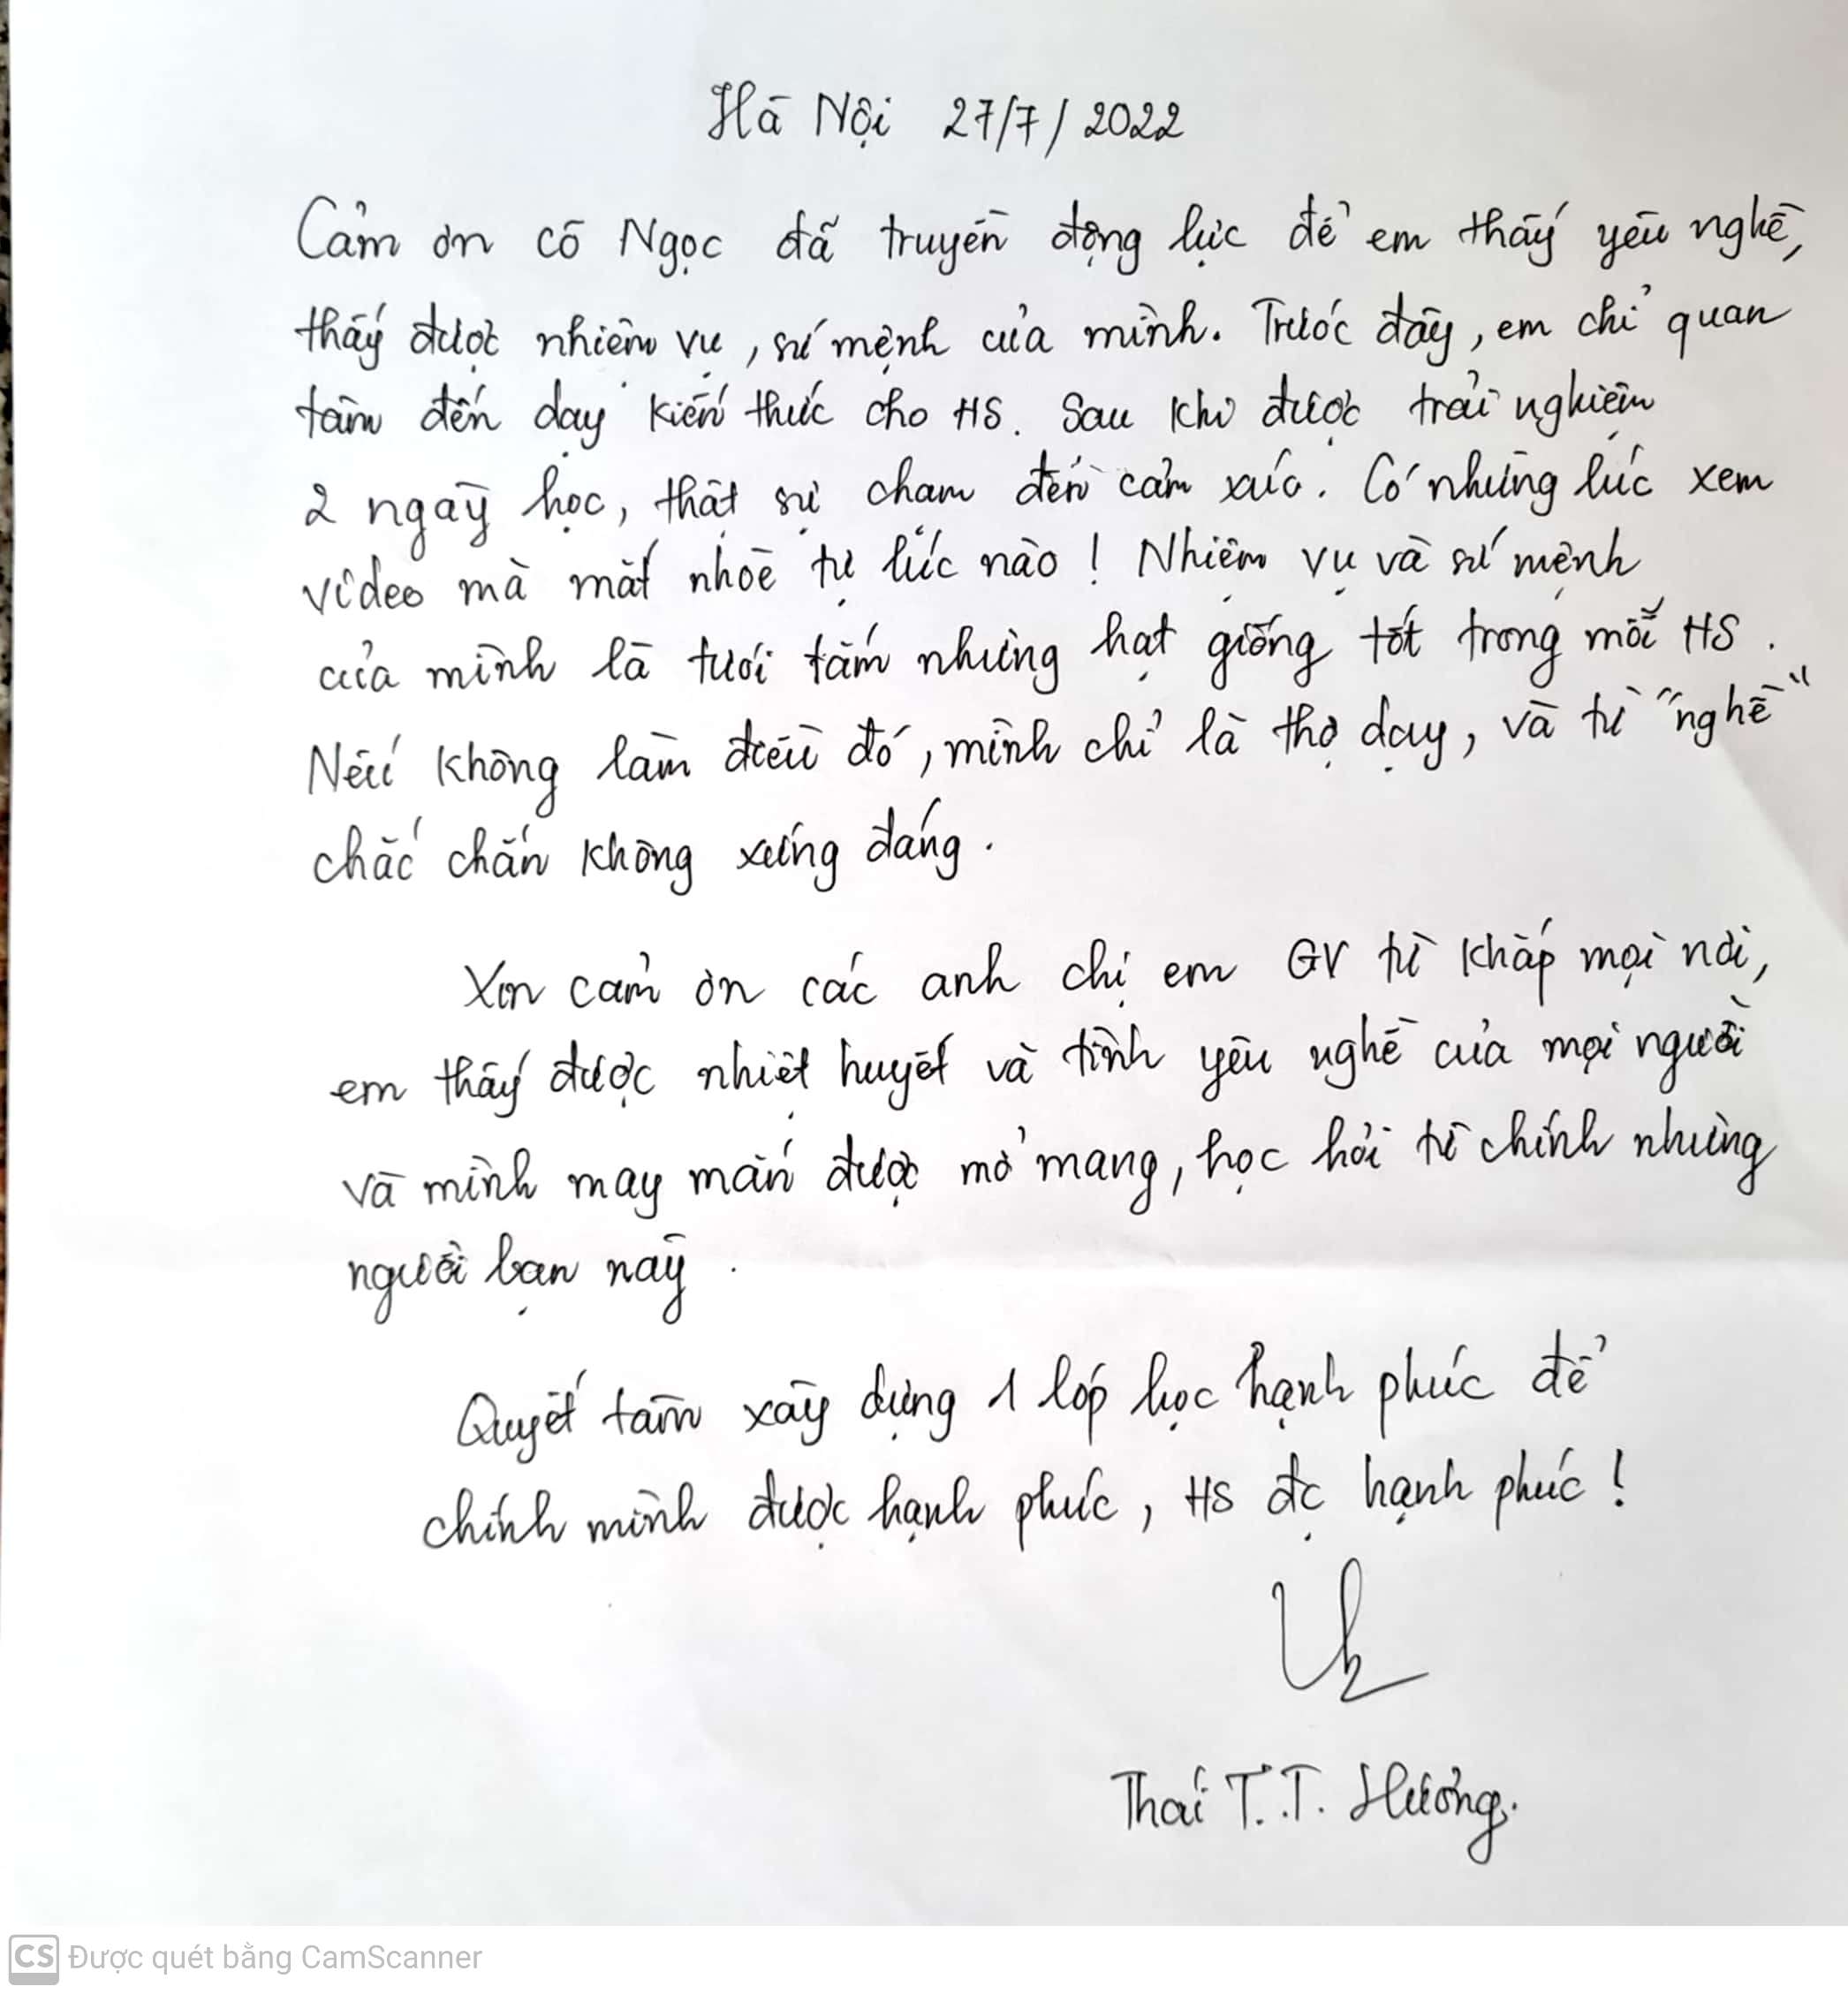 Hà Nội 27/7/2022
Cảm ơn cô Ngọc đã truyền động lực để em thấy yêu nghề,
thấy được nhiệm vụ, sứ mệnh của mình. Trước đây, em chỉ quan
tâm đến dạy kiến thức cho HS. Sau khi được trải nghiệm
2 ngày học, thật sự chạm đến cảm xúc. Có những lúc xem
video mà mắt nhòe tự lúc nào! Nhiệm vụ và sứ mệnh
của mình là tưới tắm những hạt giống tốt trong mỗi HS.
Nếu không làm điều đó, mình chỉ là thợ dạy, và từ "nghề"
chắc chắn không xứng đáng.
Xin cảm ơn các anh chị em GV từ khắp mọi nơi,
em thấy được nhiệt huyết và tình yêu nghề của mọi người
và mình may mắn được mở mang, học hỏi từ chính những
người bạn này.
Quyết tâm xây dựng 1 lớp học hạnh phúc để
chính mình được hạnh phúc, HS đc hạnh phúc!
Thái T.T. Hường.
CS Được quét bằng CamScanner